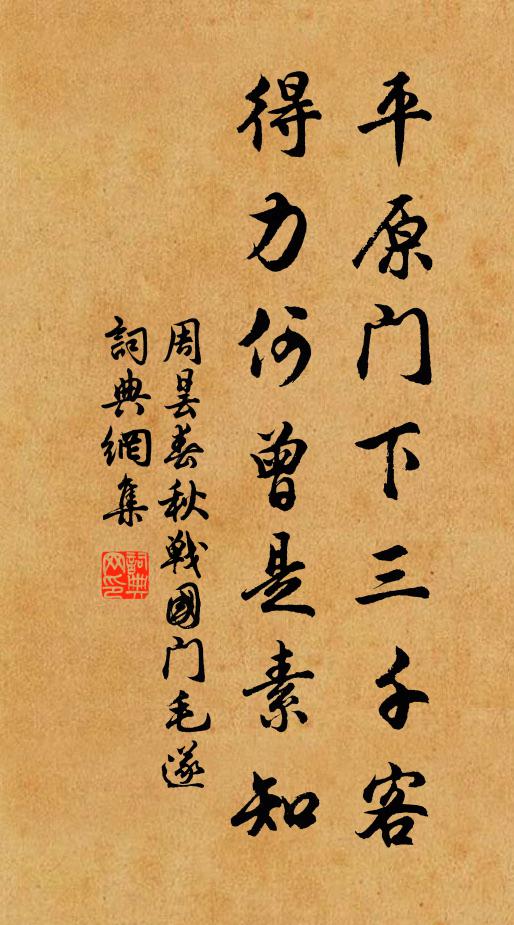 平原门下三千客
得力何曾是素知
周昙春秋戦國门毛遂
詞典網集
詞典
网印